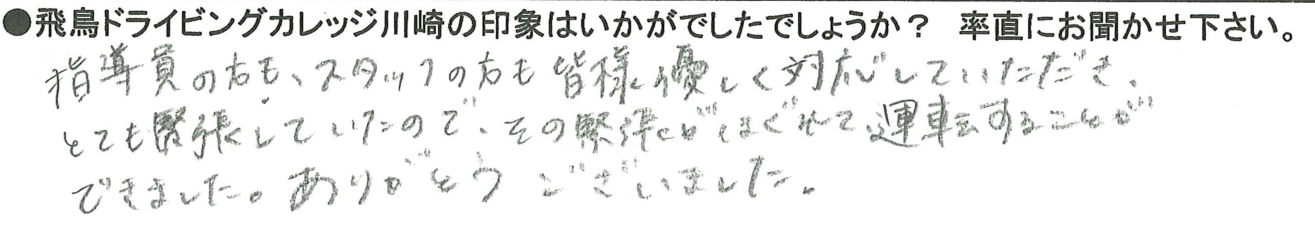 ●飛鳥ドライビングカレッジ川崎の印象はいかがでしたでしょうか？　率直にお聞かせ下さい。
指導員の方も、スタッフの方も皆様優しく対応していただき、
とても緊張していたので、その緊張がほぐれて運転することが
できました。ありがとうございました。